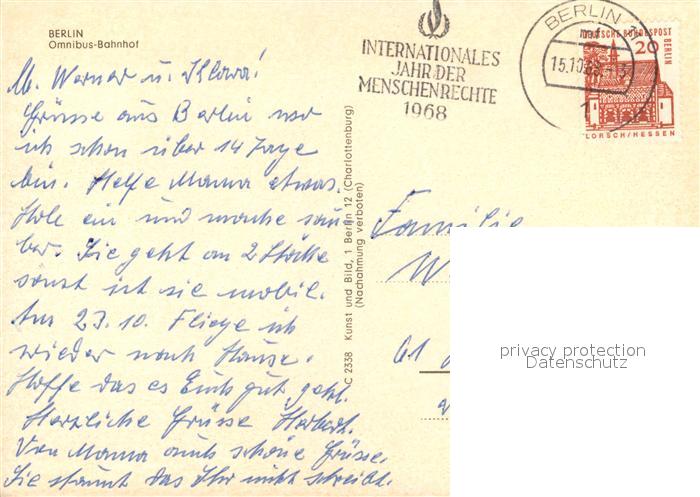 BERLIN
Omnibus-Bahnhof
INTERNATIONALES
JAHR DER
MENSCHENRECHTE
1968
BERLIN
15.10.68
1
DEUTSCHE BUNDESPOST
BERLIN
20
LORSCH/HESSEN
M. Werner u. Klara!
Grüsse aus Berlin wo
ich schon über 14 Tage
bin. Helfe Mama etwas.
Hole ein und mache sau
ber. Sie geht an 2 Stöcke
sonst ist sie mobil.
Am 23.10. Fliege ich
wieder nach Hause.
Hoffe das es Euch gut geht.
Herzliche Grüsse Herbert.
Von Mama auch schöne Grüsse.
Sie staunt das Ihr nicht schreibt.
C 2338 Kunst und Bild, 1 Berlin 12 (Charlottenburg)
(Nachahmung verboten)
Familie
W
61
privacy protection
Datenschutz